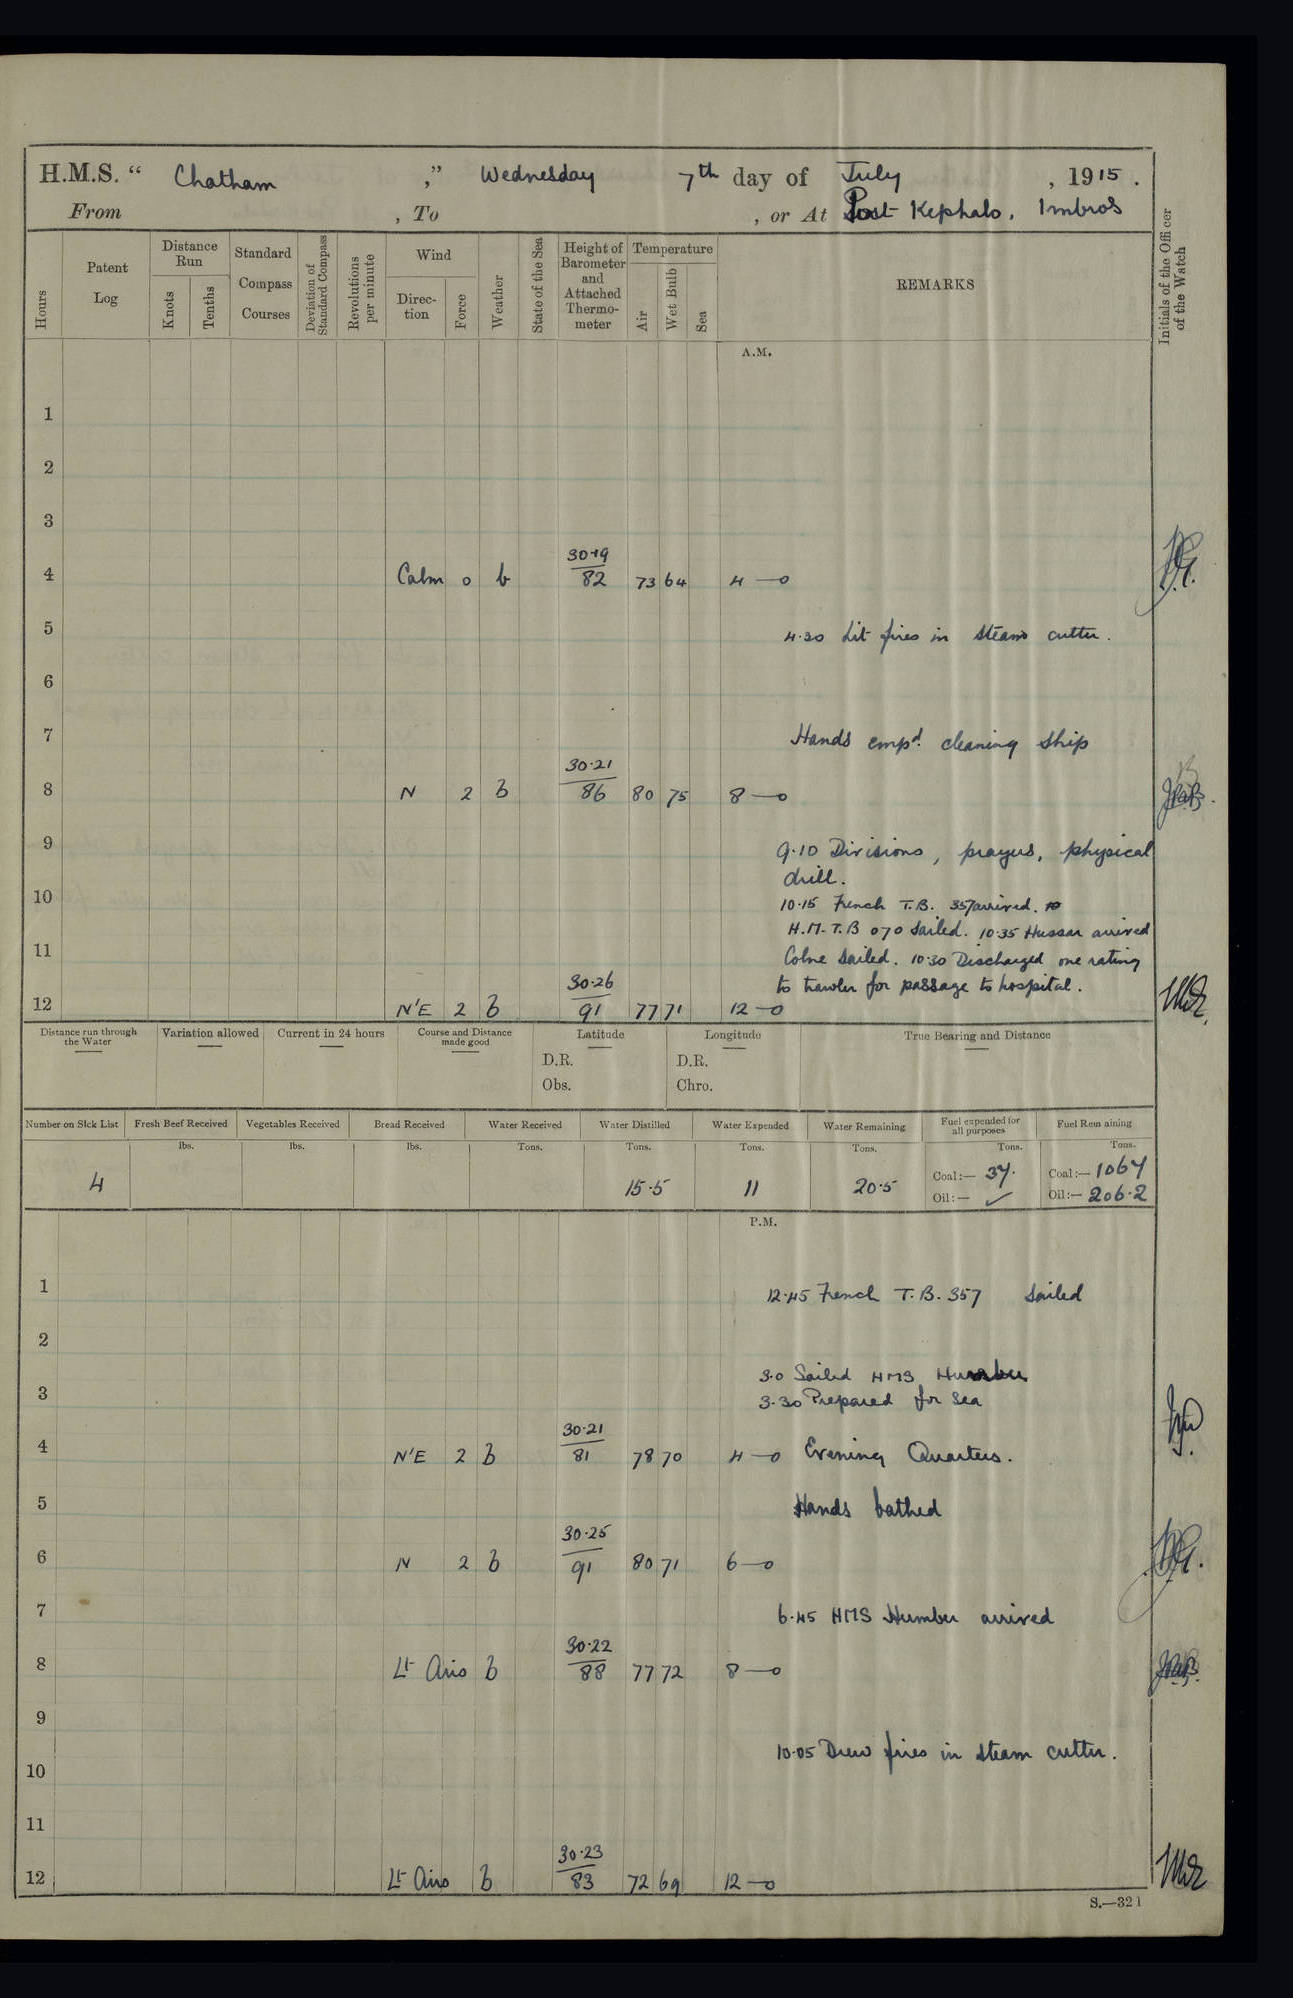 H.M.S. “ Chatham ,” Wednesday 7th day of July , 1915 .
From , To , or At Port Kephalo, Imbros
Hours
Patent Log
Distance Run
Knots
Tenths
Standard Compass Courses
Deviation of Standard Compass
Revolutions per minute
Wind
Direc- tion
Force
Weather
State of the Sea
Height of Barometer and Attached Thermo- meter
Temperature
Air
Wet Bulb
Sea
REMARKS
Initials of the Officer of the Watch
A.M.
1
2
3
30·19
4 Calm 0 b 82 73 64 4—0
5 4·30 Lit fires in steam cutter.
6
7 Hands empd. cleaning ship
30·21
8 N 2 b 86 80 75 8—0
9 9·10 Divisions, prayers, physical
drill.
10 10·15 French T.B. 357 arrived.
H.M.T.B 070 sailed. 10·35 Hussar arrived
11 Colne sailed. 10·30 Discharged one rating
30·26 to trawler for passage to hospital.
12 N'E 2 b 91 77 71 12—0
Distance run through the Water
Variation allowed
Current in 24 hours
Course and Distance made good
Latitude
D.R.
Obs.
Longitude
D.R.
Chro.
True Bearing and Distance
Number on Sick List
Fresh Beef Received
Vegetables Received
Bread Received
Water Received
Water Distilled
Water Expended
Water Remaining
Fuel expended for all purposes
Fuel Remaining
lbs. lbs. lbs. Tons. Tons. Tons. Tons. Tons. Tons.
Coal:— 37. Coal:— 1067
4 15·5 11 20·5
Oil:— ✓ Oil:— 206·2
P.M.
1 12·45 French T.B. 357 sailed
2
3·0 Sailed HMS Humber
3 3·30 Prepared for sea
30·21
4 N'E 2 b 81 78 70 4—0 Evening Quarters.
5 Hands bathed
30·25
6 N 2 b 91 80 71 6—0
7 6·45 HMS Humber arrived
30·22
8 Lt Airs b 88 77 72 8—0
9
10·05 Drew fires in steam cutter.
10
11
30·23
12 Lt Airs b 83 72 69 12—0
S.—321